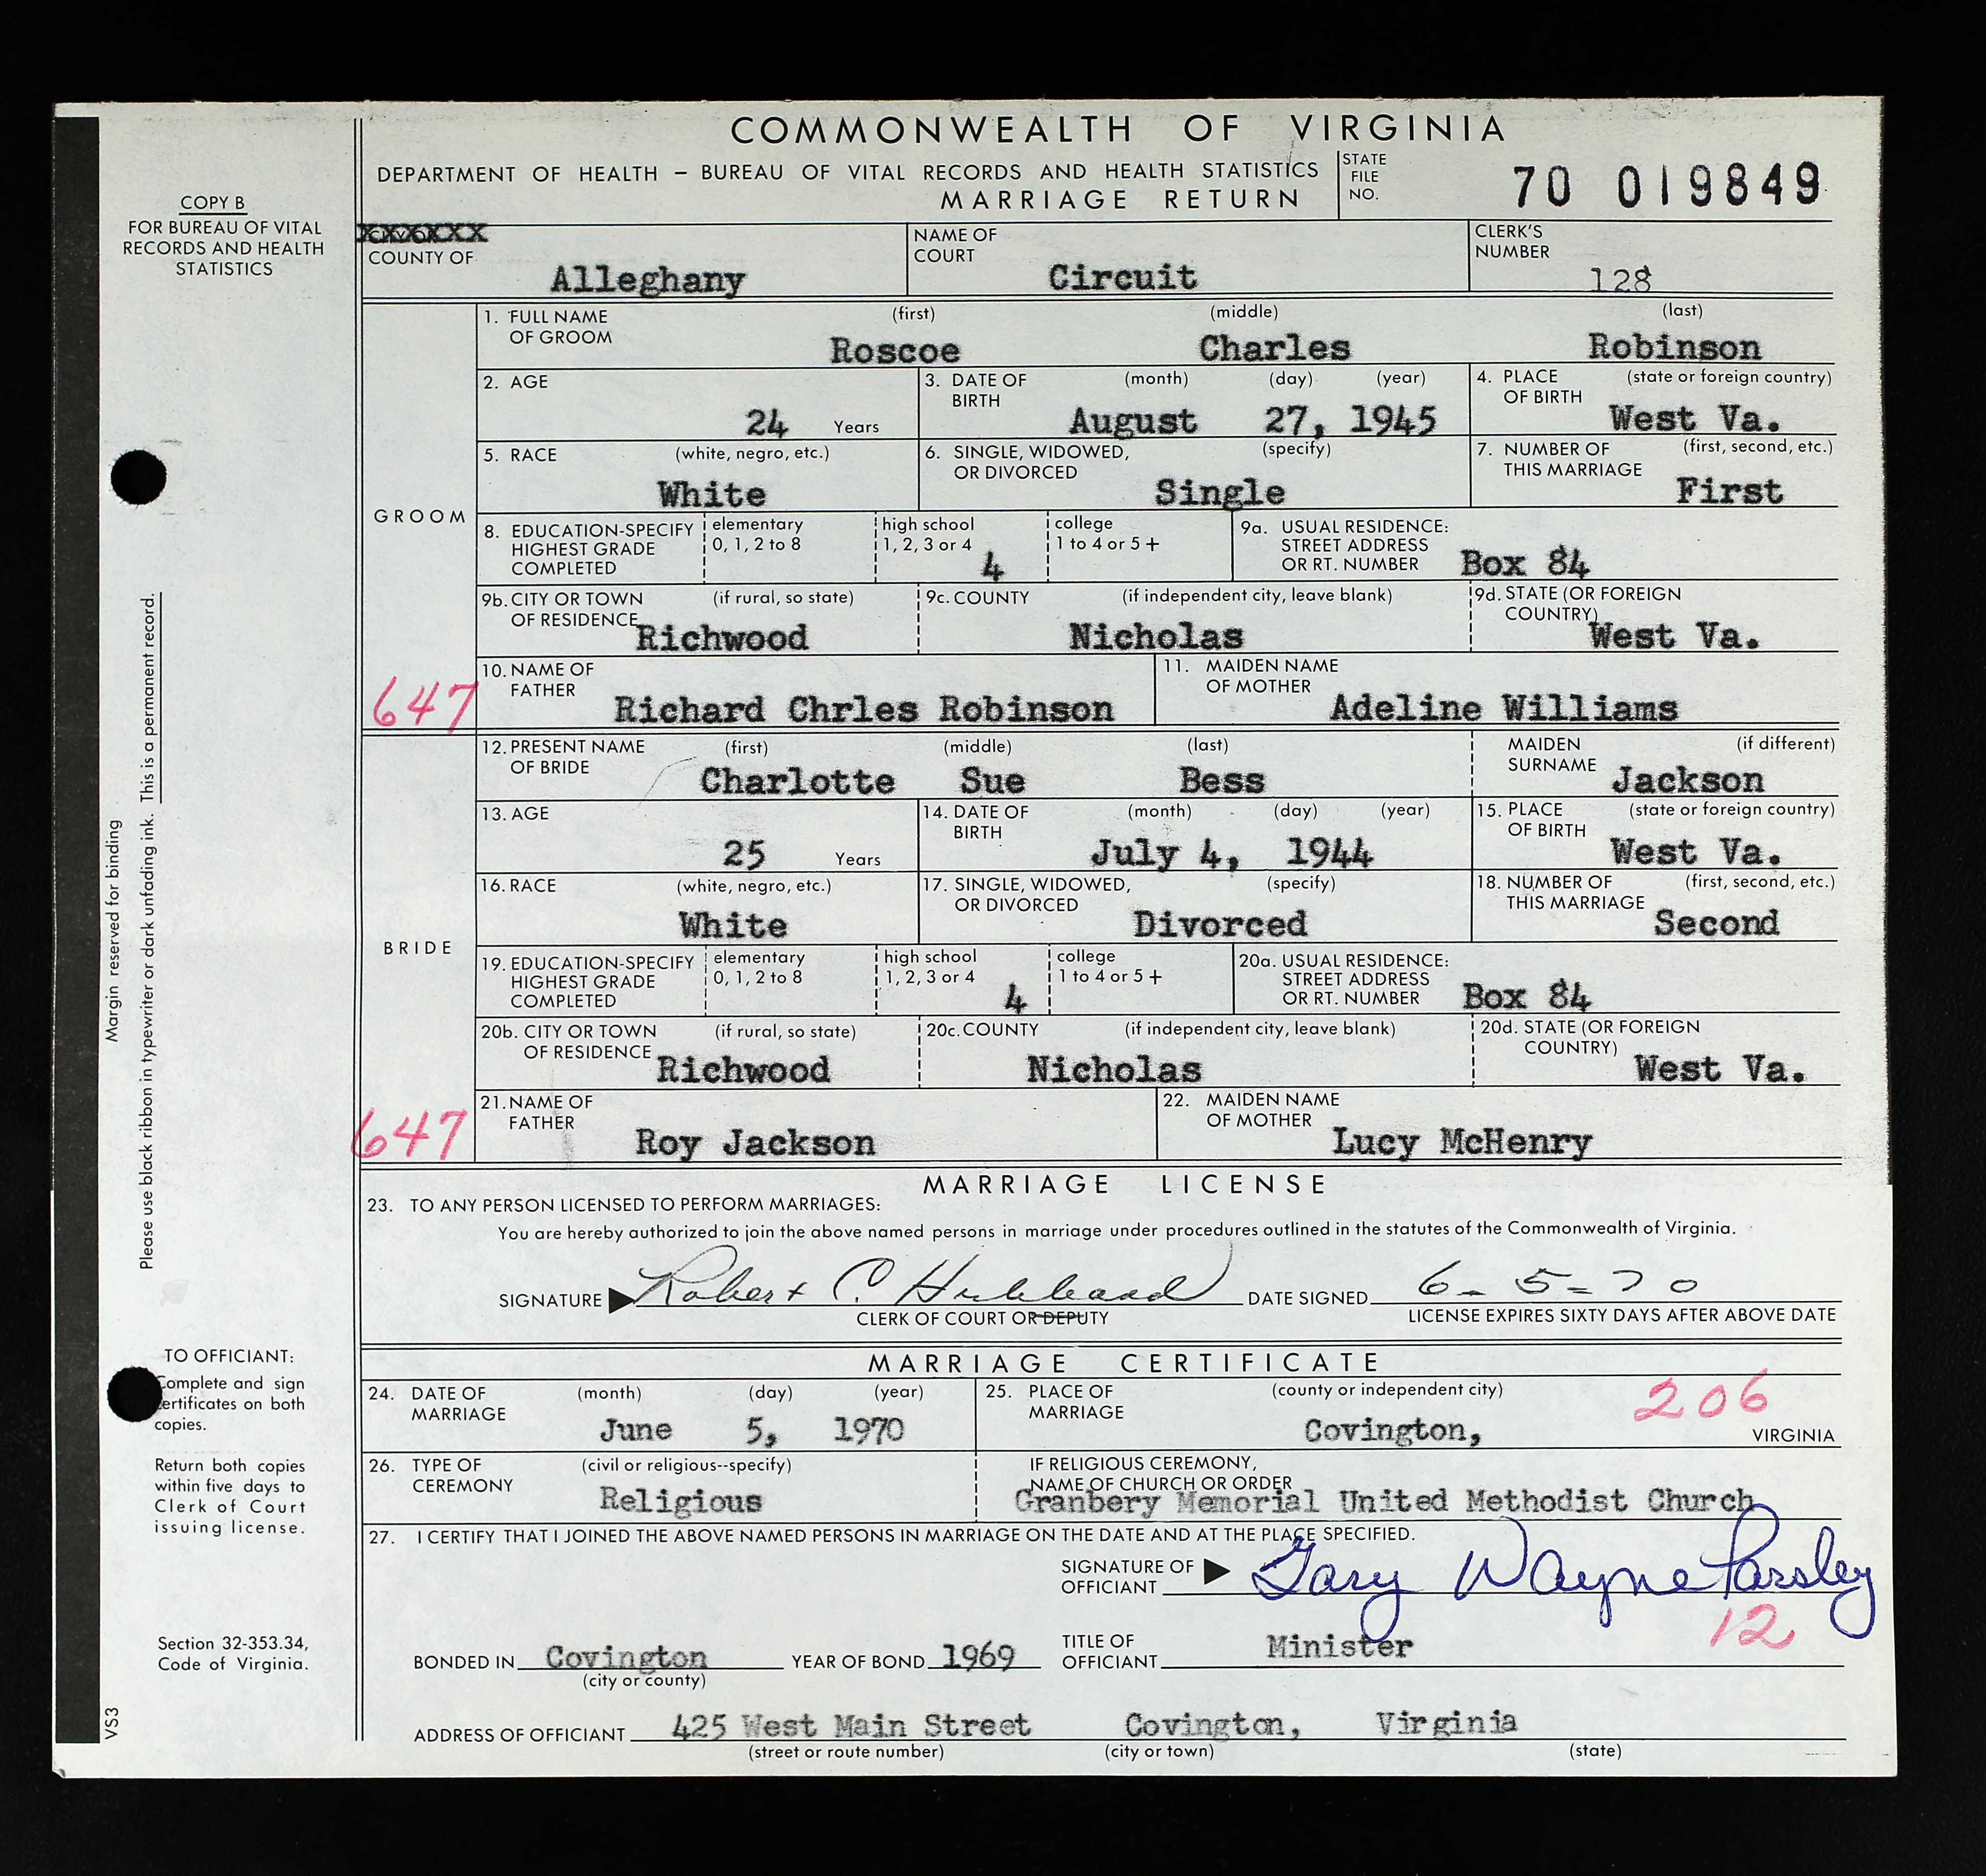 COMMONWEALTH OF VIRGINIA
DEPARTMENT OF HEALTH – BUREAU OF VITAL RECORDS AND HEALTH STATISTICS
MARRIAGE RETURN
STATE FILE NO. 70 019849
COPY B
FOR BUREAU OF VITAL
RECORDS AND HEALTH
STATISTICS
XXXXXX
COUNTY OF Alleghany
NAME OF COURT Circuit
CLERK'S NUMBER 128
GROOM
1. FULL NAME OF GROOM (first) Roscoe (middle) Charles (last) Robinson
2. AGE 24 Years
3. DATE OF BIRTH (month) (day) (year) August 27, 1945
4. PLACE OF BIRTH (state or foreign country) West Va.
5. RACE (white, negro, etc.) White
6. SINGLE, WIDOWED, OR DIVORCED (specify) Single
7. NUMBER OF THIS MARRIAGE (first, second, etc.) First
8. EDUCATION-SPECIFY HIGHEST GRADE COMPLETED
elementary 0, 1, 2 to 8
high school 1, 2, 3 or 4 4
college 1 to 4 or 5+
9a. USUAL RESIDENCE: STREET ADDRESS OR RT. NUMBER Box 84
9b. CITY OR TOWN OF RESIDENCE (if rural, so state) Richwood
9c. COUNTY (if independent city, leave blank) Nicholas
9d. STATE (OR FOREIGN COUNTRY) West Va.
647
10. NAME OF FATHER Richard Chrles Robinson
11. MAIDEN NAME OF MOTHER Adeline Williams
BRIDE
12. PRESENT NAME OF BRIDE (first) Charlotte (middle) Sue (last) Bess
MAIDEN SURNAME (if different) Jackson
13. AGE 25 Years
14. DATE OF BIRTH (month) (day) (year) July 4, 1944
15. PLACE OF BIRTH (state or foreign country) West Va.
16. RACE (white, negro, etc.) White
17. SINGLE, WIDOWED, OR DIVORCED (specify) Divorced
18. NUMBER OF THIS MARRIAGE (first, second, etc.) Second
19. EDUCATION-SPECIFY HIGHEST GRADE COMPLETED
elementary 0, 1, 2 to 8
high school 1, 2, 3 or 4 4
college 1 to 4 or 5+
20a. USUAL RESIDENCE: STREET ADDRESS OR RT. NUMBER Box 84
20b. CITY OR TOWN OF RESIDENCE (if rural, so state) Richwood
20c. COUNTY (if independent city, leave blank) Nicholas
20d. STATE (OR FOREIGN COUNTRY) West Va.
647
21. NAME OF FATHER Roy Jackson
22. MAIDEN NAME OF MOTHER Lucy McHenry
MARRIAGE LICENSE
23. TO ANY PERSON LICENSED TO PERFORM MARRIAGES:
You are hereby authorized to join the above named persons in marriage under procedures outlined in the statutes of the Commonwealth of Virginia.
SIGNATURE Robert C. Hubbard DATE SIGNED 6-5-70
CLERK OF COURT OR DEPUTY
LICENSE EXPIRES SIXTY DAYS AFTER ABOVE DATE
MARRIAGE CERTIFICATE
24. DATE OF MARRIAGE (month) (day) (year) June 5, 1970
25. PLACE OF MARRIAGE (county or independent city) Covington, VIRGINIA
206
26. TYPE OF CEREMONY (civil or religious--specify) Religious
IF RELIGIOUS CEREMONY, NAME OF CHURCH OR ORDER
Granbery Memorial United Methodist Church
27. I CERTIFY THAT I JOINED THE ABOVE NAMED PERSONS IN MARRIAGE ON THE DATE AND AT THE PLACE SPECIFIED.
SIGNATURE OF OFFICIANT Gary Wayne Parsley
12
BONDED IN Covington YEAR OF BOND 1969
(city or county)
TITLE OF OFFICIANT Minister
ADDRESS OF OFFICIANT 425 West Main Street Covington, Virginia
(street or route number) (city or town) (state)
Margin reserved for binding
Please use black ribbon in typewriter or dark unfading ink. This is a permanent record.
TO OFFICIANT:
Complete and sign
certificates on both
copies.
Return both copies
within five days to
Clerk of Court
issuing license.
Section 32-353.34,
Code of Virginia.
VS3